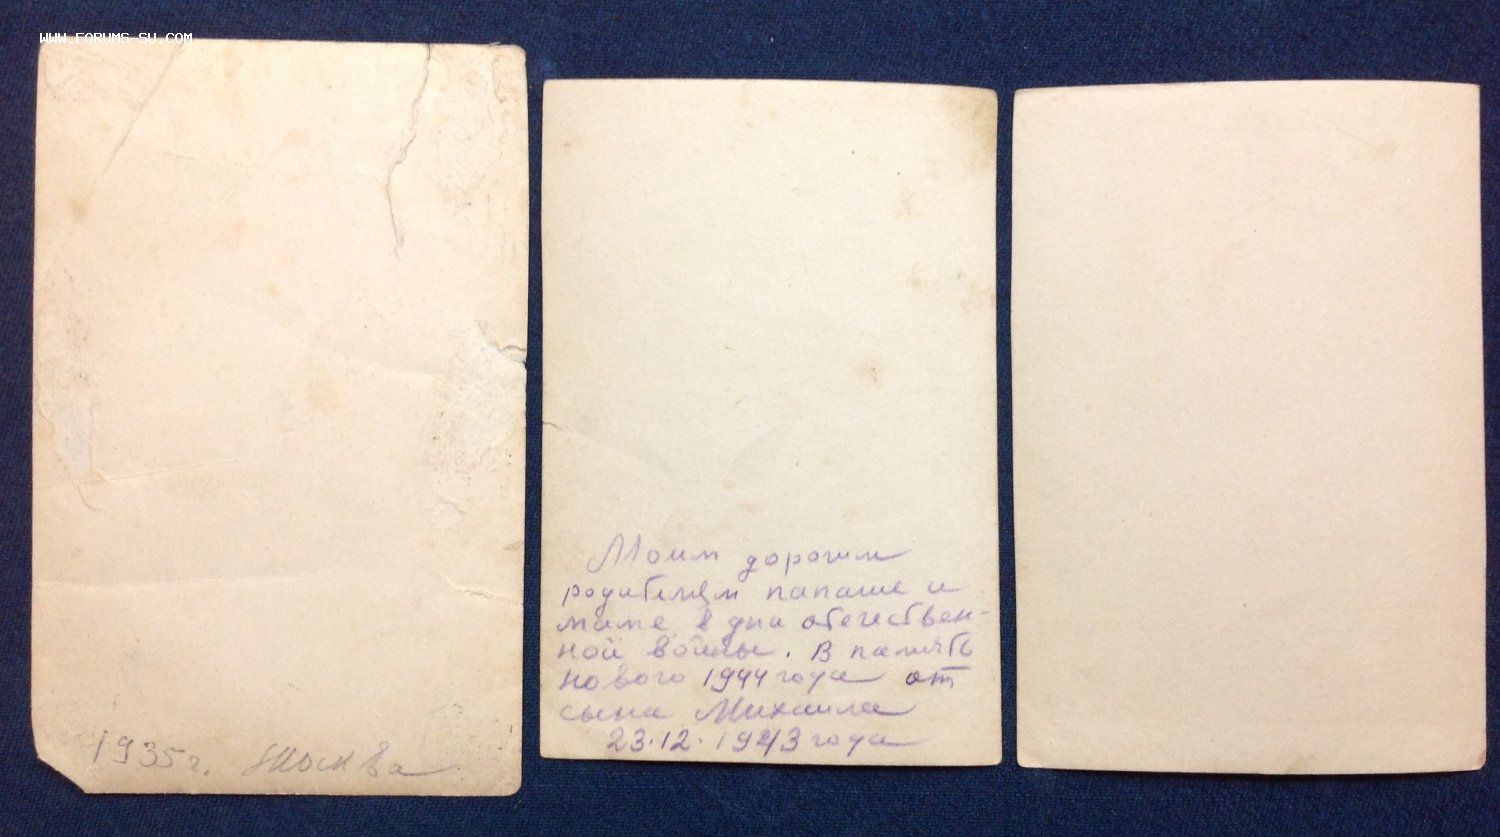 WWW.FORUMS-SU.COM
1935г. Москва
Моим дорогим
родителям папаше и
маме в дни отечествен-
ной войны. В память
нового 1944 года от
сына Михаила
23.12.1943 года